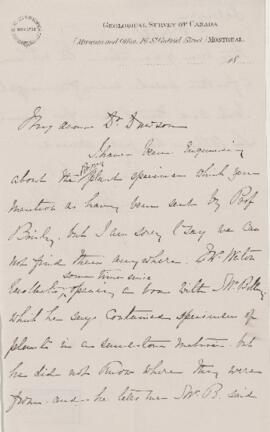 GEOLOGICAL SURVEY OF CANADA
(Museum and Office, 76 St Gabriel Street) MONTREAL
18
My dear Dr Dawson
I have been enquiring
about the fossil plant specimens which you
mention as having been sent by Prof
Bailey. but I am sorry to say we can
not find them anywhere. Mr Weston
recollects some time since opening a box with Mr Billings
which he says contained specimens of
plants in a sandstone matrix. but
he did not know where they were
from. and he tells me Mr B. said